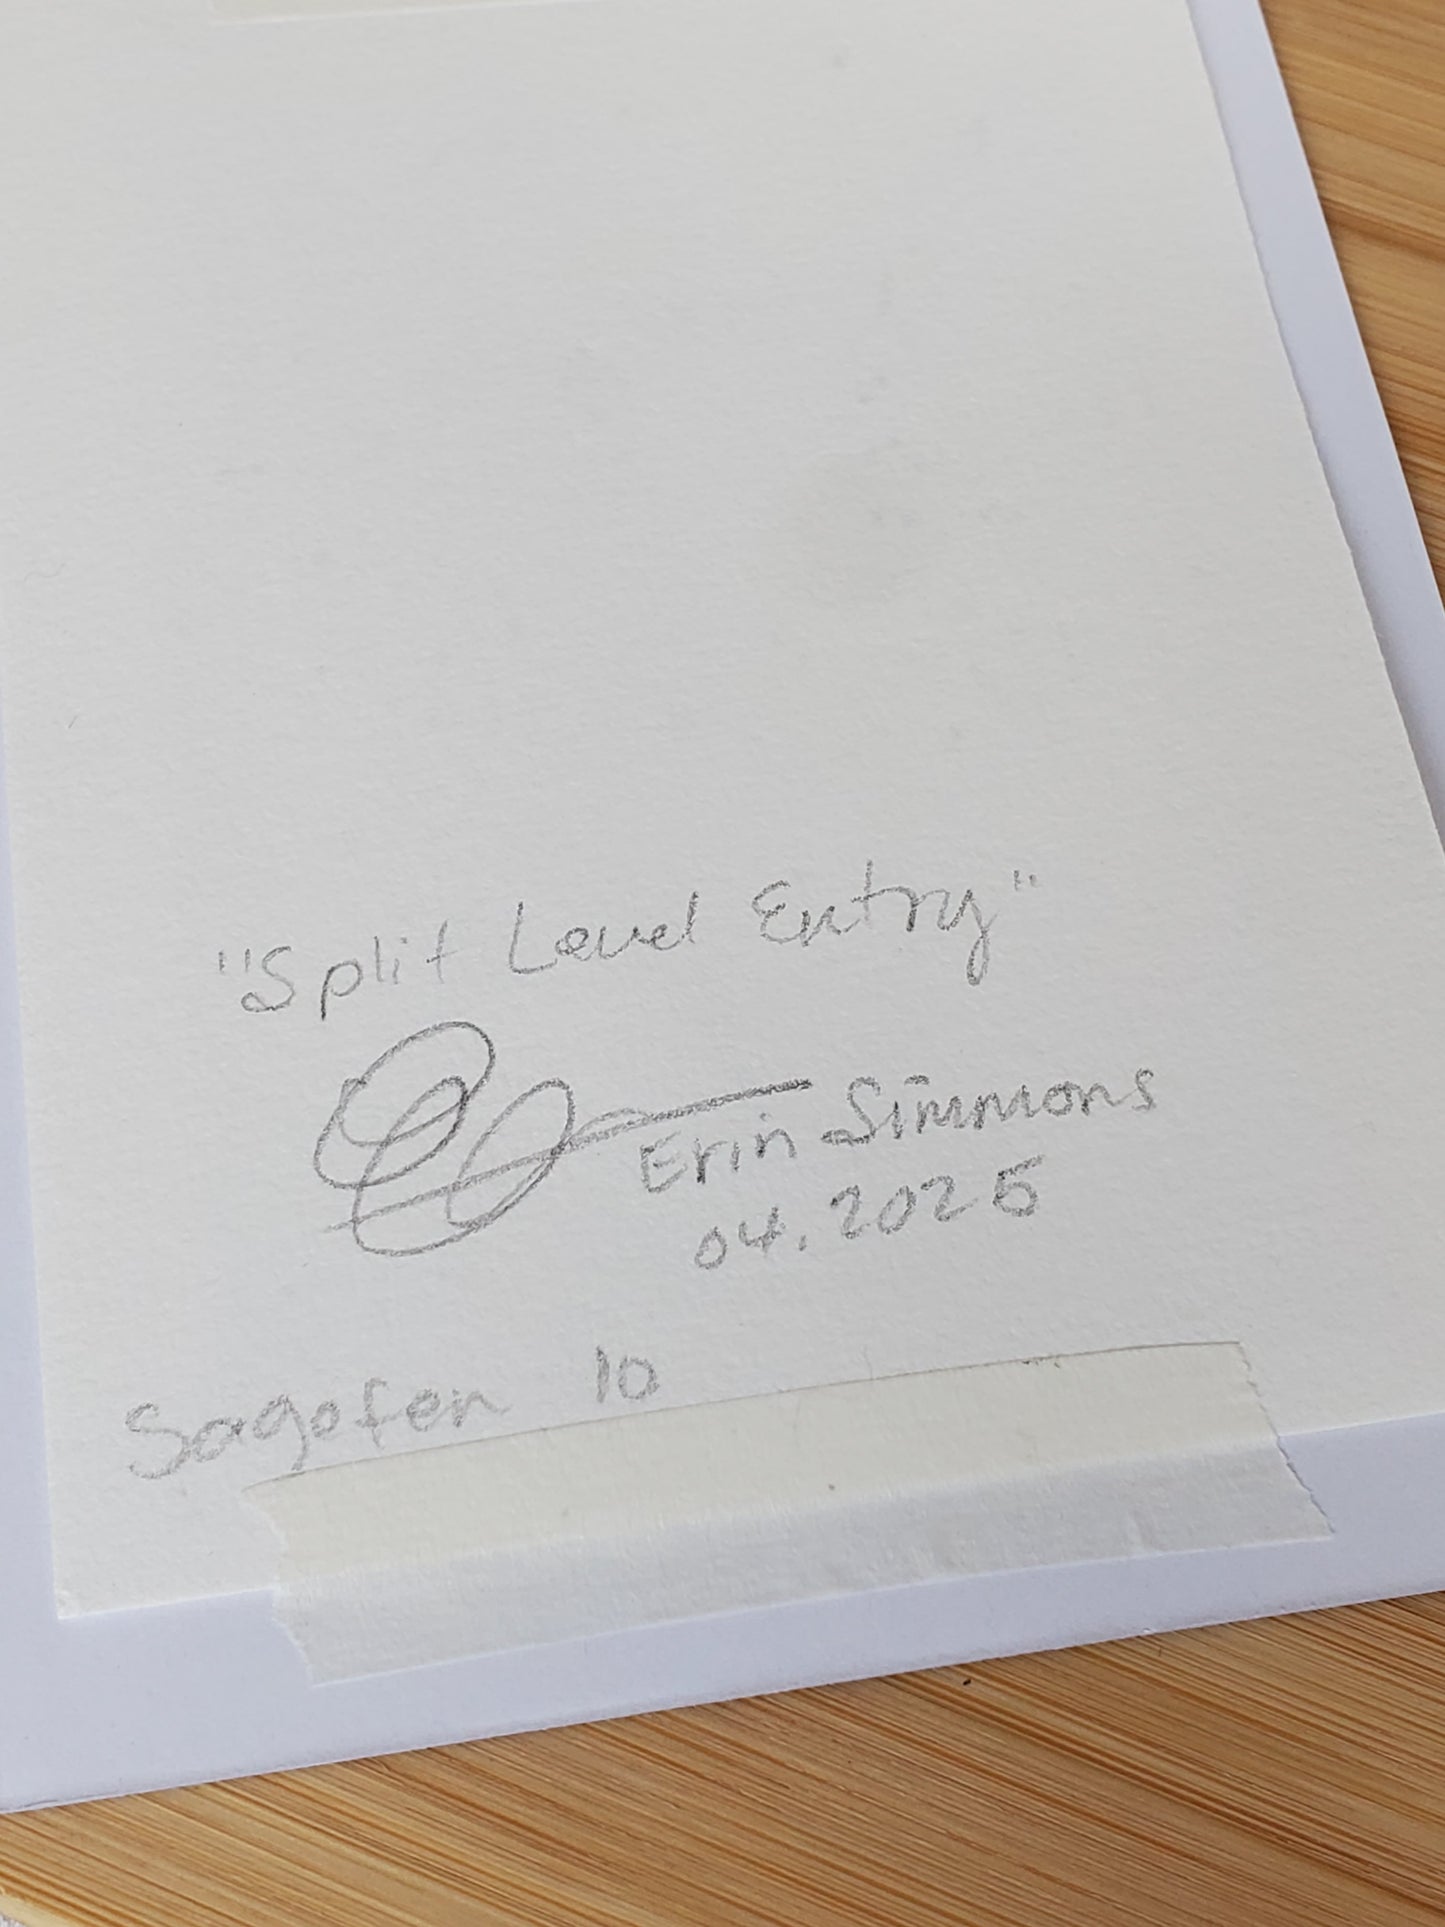 "Split Level Entry"
Erin Simmons
04.2025
Sagofen 10